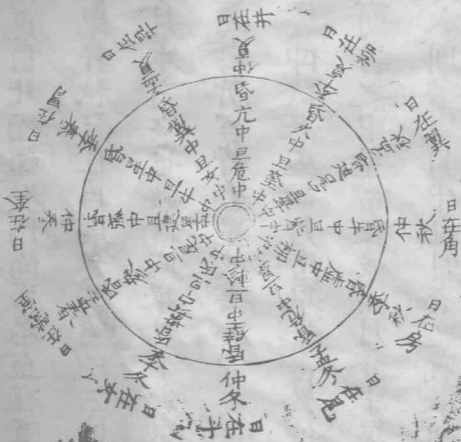 日在井
仲夏
昏亢中旦危中
日在柳
季夏
昏火中旦奎中
日在翼
孟秋
日在角
仲秋
昏牛中旦觜中
日在房
季秋
昏虛中旦柳中
日在尾
孟冬
昏危中旦
日在斗
仲冬
昏壁中旦軫中
日在女
季冬
昏婁中旦氐中
日在營室
孟春
昏參中旦尾中
日在奎
仲春
昏弧中旦建中
日在胃
季春
昏星中旦牛中
日在畢
孟夏
昏翼中旦女中